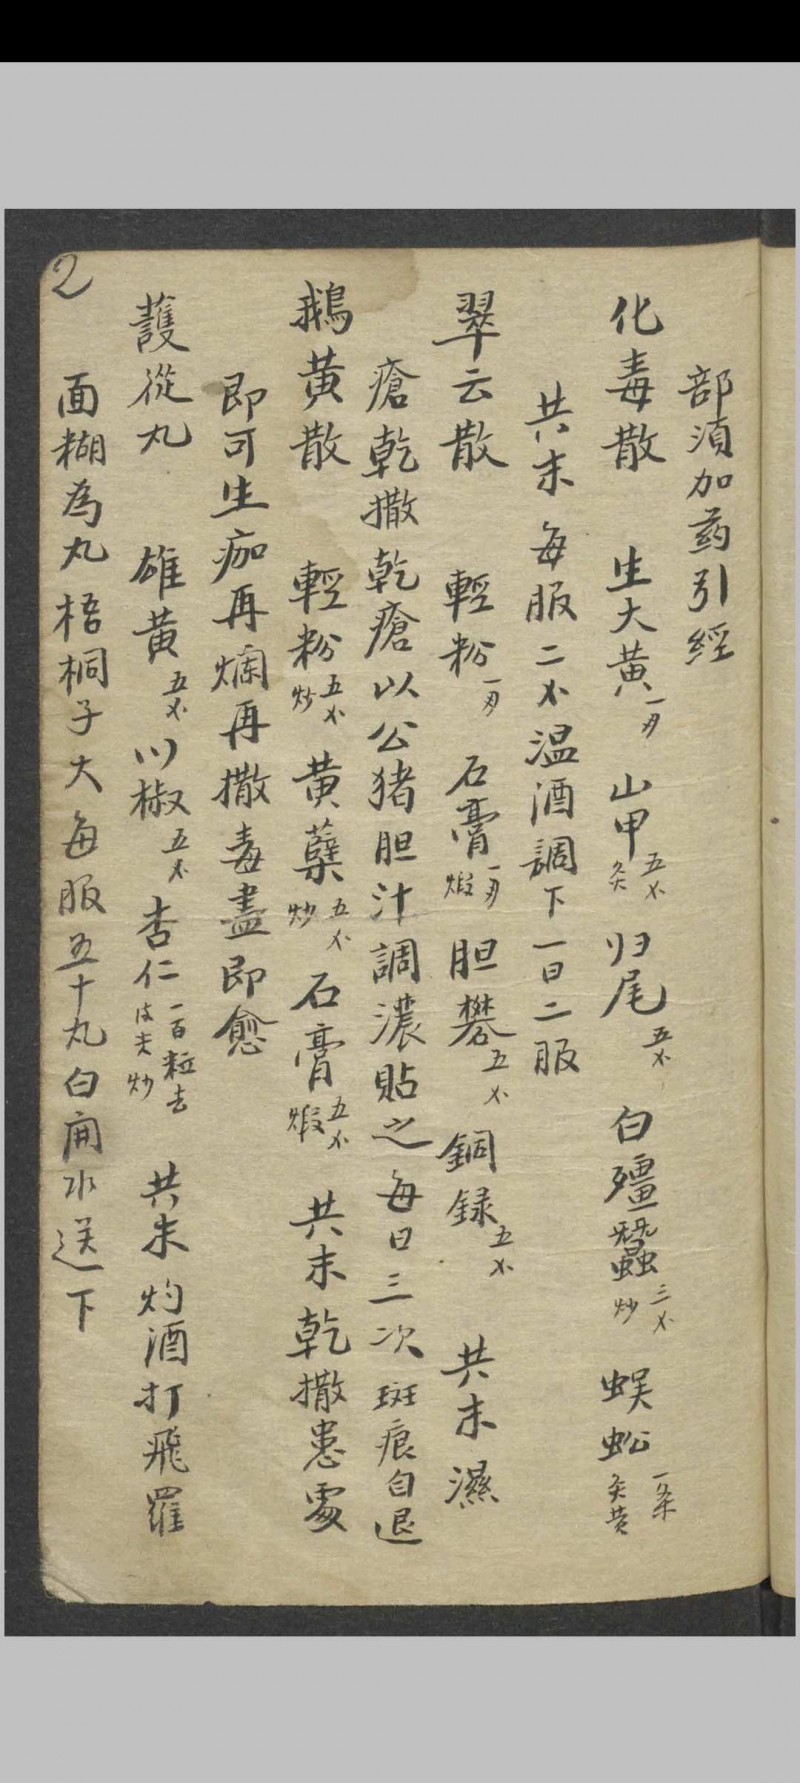 部須加药引經
化毒散 生大黄一刄 山甲五不炙 归尾五不 白殭蠶三不炒 蜈蚣一条炙黄
共末每服二不温酒調下一日二服
翠云散 輕粉一刄 石膏一刄煅 胆礬五不 銅録五不 共末濕
瘡乾撒乾瘡以公猪胆汁調濃貼之每日三次斑痕自退
鵝黄散 輕粉五不炒 黄蘗五不炒 石膏五不煅 共末乾撒患處
即可生痂再爛再撒毒盡即愈
護從丸 雄黄五不 川椒五不 杏仁一百粒去皮尖炒 共末灼酒打飛羅
面糊為丸梧桐子大每服五十丸白開水送下
2